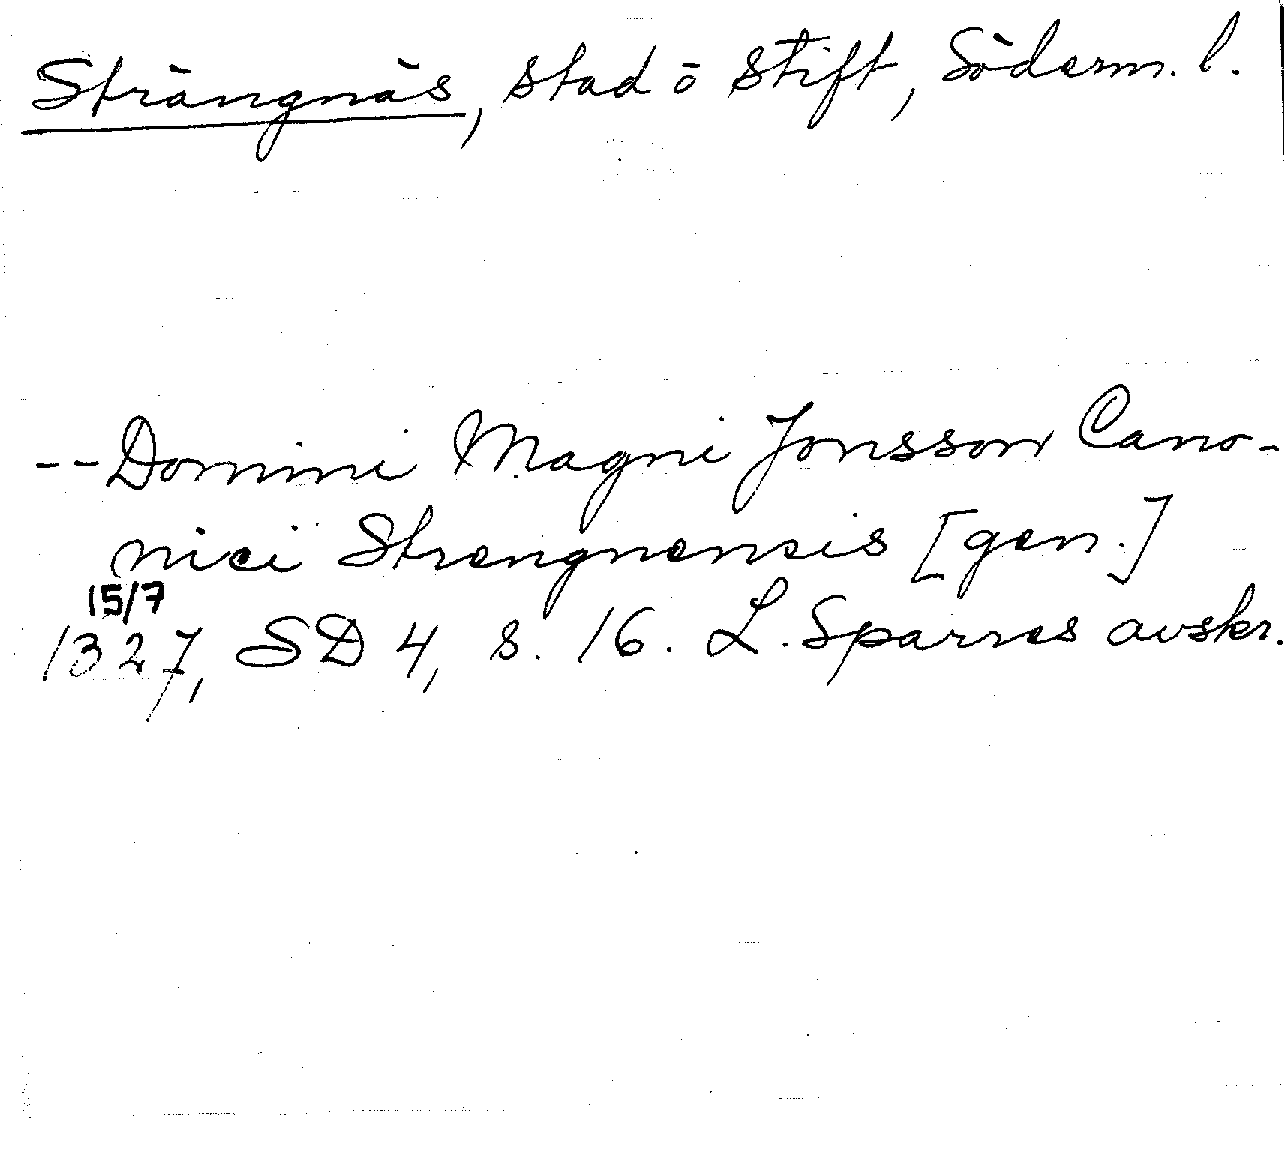 Strängnäs, stad o stift, Söderm. l.
-- Domini Magni Jonsson Cano-
nici Strengnensis [gen.]
15/7
1327, SD 4, s. 16. L. Sparres avskr.